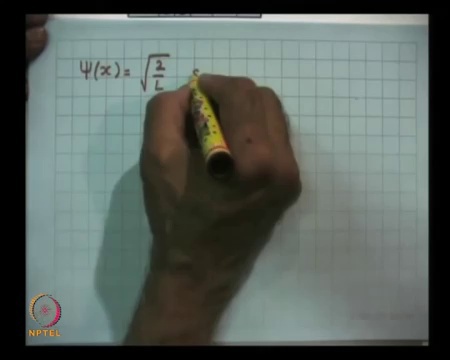 Ψ(x) = √(2/L) s
NPTEL